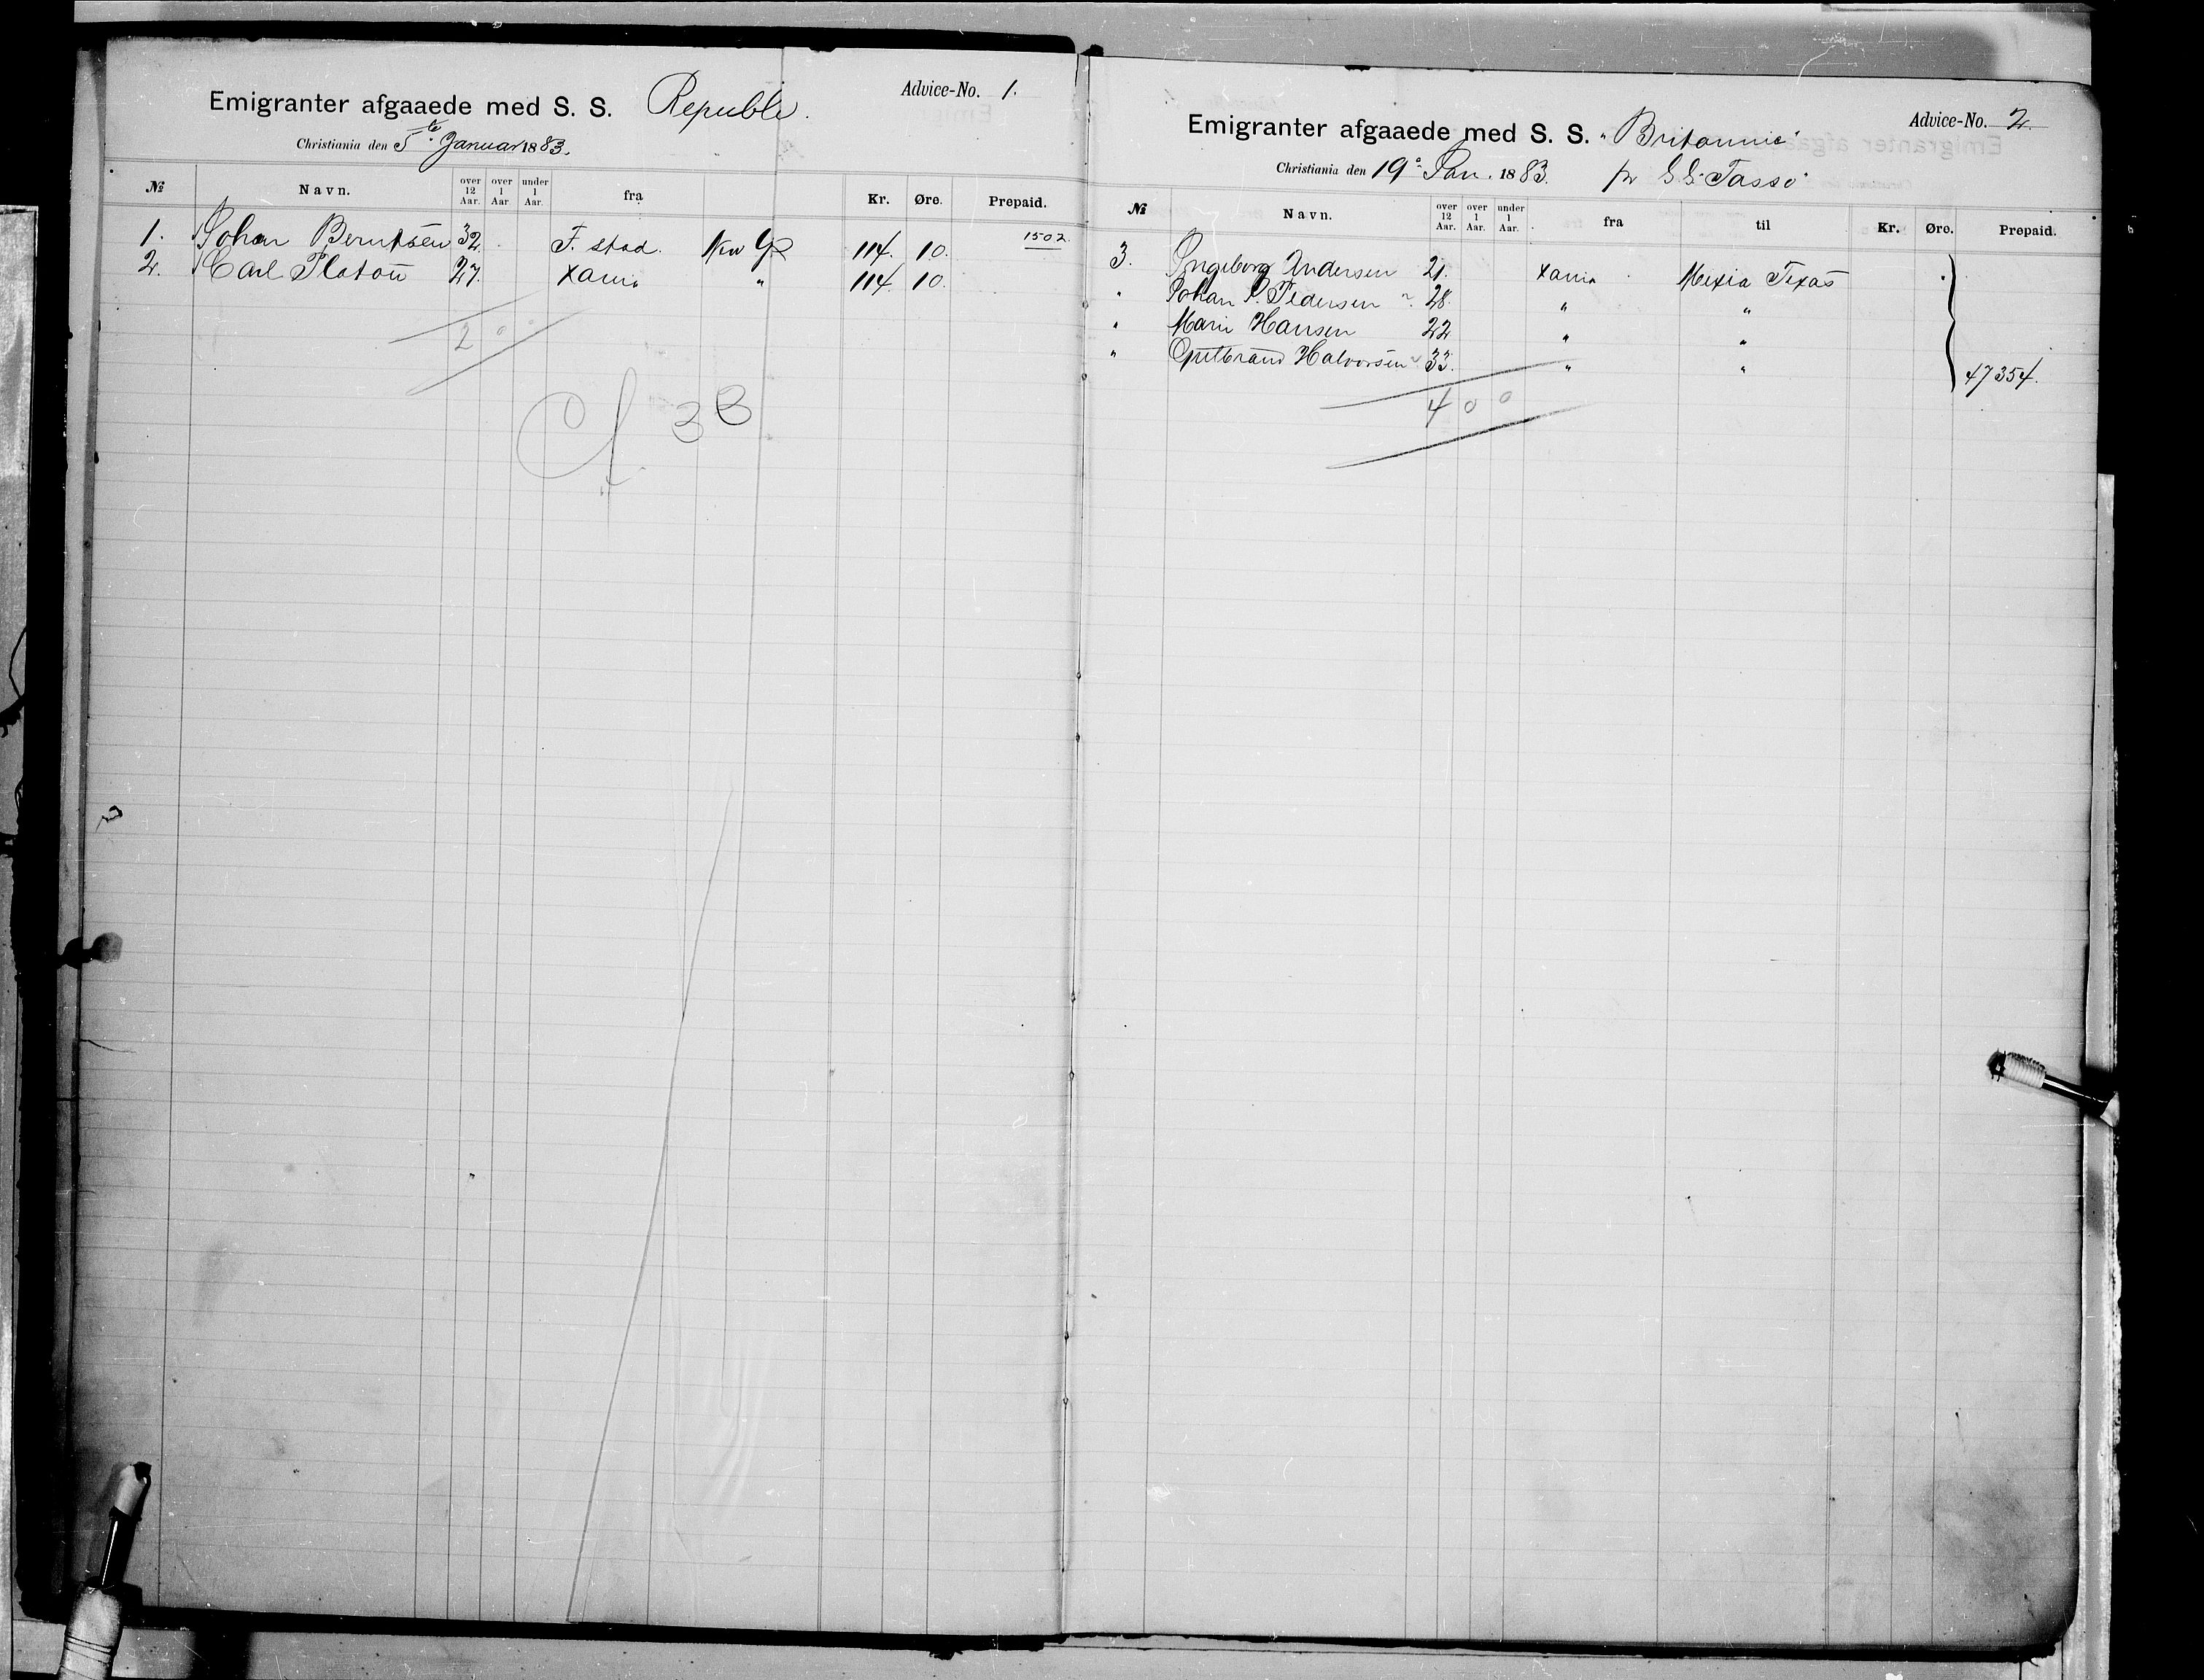 Advice-No. 1.
Emigranter afgaaede med S. S. Republi.
Christiania den 5te Januar 1883.
№ Navn. over 12 Aar. over 1 Aar under 1 Aar. fra Kr. Øre. Prepaid.
1. Johan Berntsen 32. F. stad. New York 114. 10. 1502.
2. Carl Platou 27. Xania " 114. 10.
2 0 0
Cf 33
Advice-No. 2.
Emigranter afgaaede med S. S. "Britannic"
Christiania den 19. Jan. 1883. pr S.S. Tasso
№ Navn. over 12 Aar. over 1 Aar. under 1 Aar. fra til Kr. Øre. Prepaid.
3. Ingeborg Andersen 21. Xania Mexia Texas
" Johan P. Pedersen 28. " "
" Marie Hansen 22 " "
" Gulbrand Halvorsen 33. " " 47354.
4 0 0